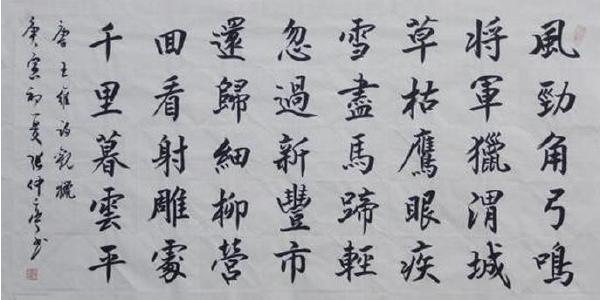 風勁角弓鳴
將軍獵渭城
草枯鷹眼疾
雪盡馬蹄輕
忽過新豐市
還歸細柳營
回看射雕處
千里暮雲平
唐王維詩觀獵
庚寅初夏張仲亭书